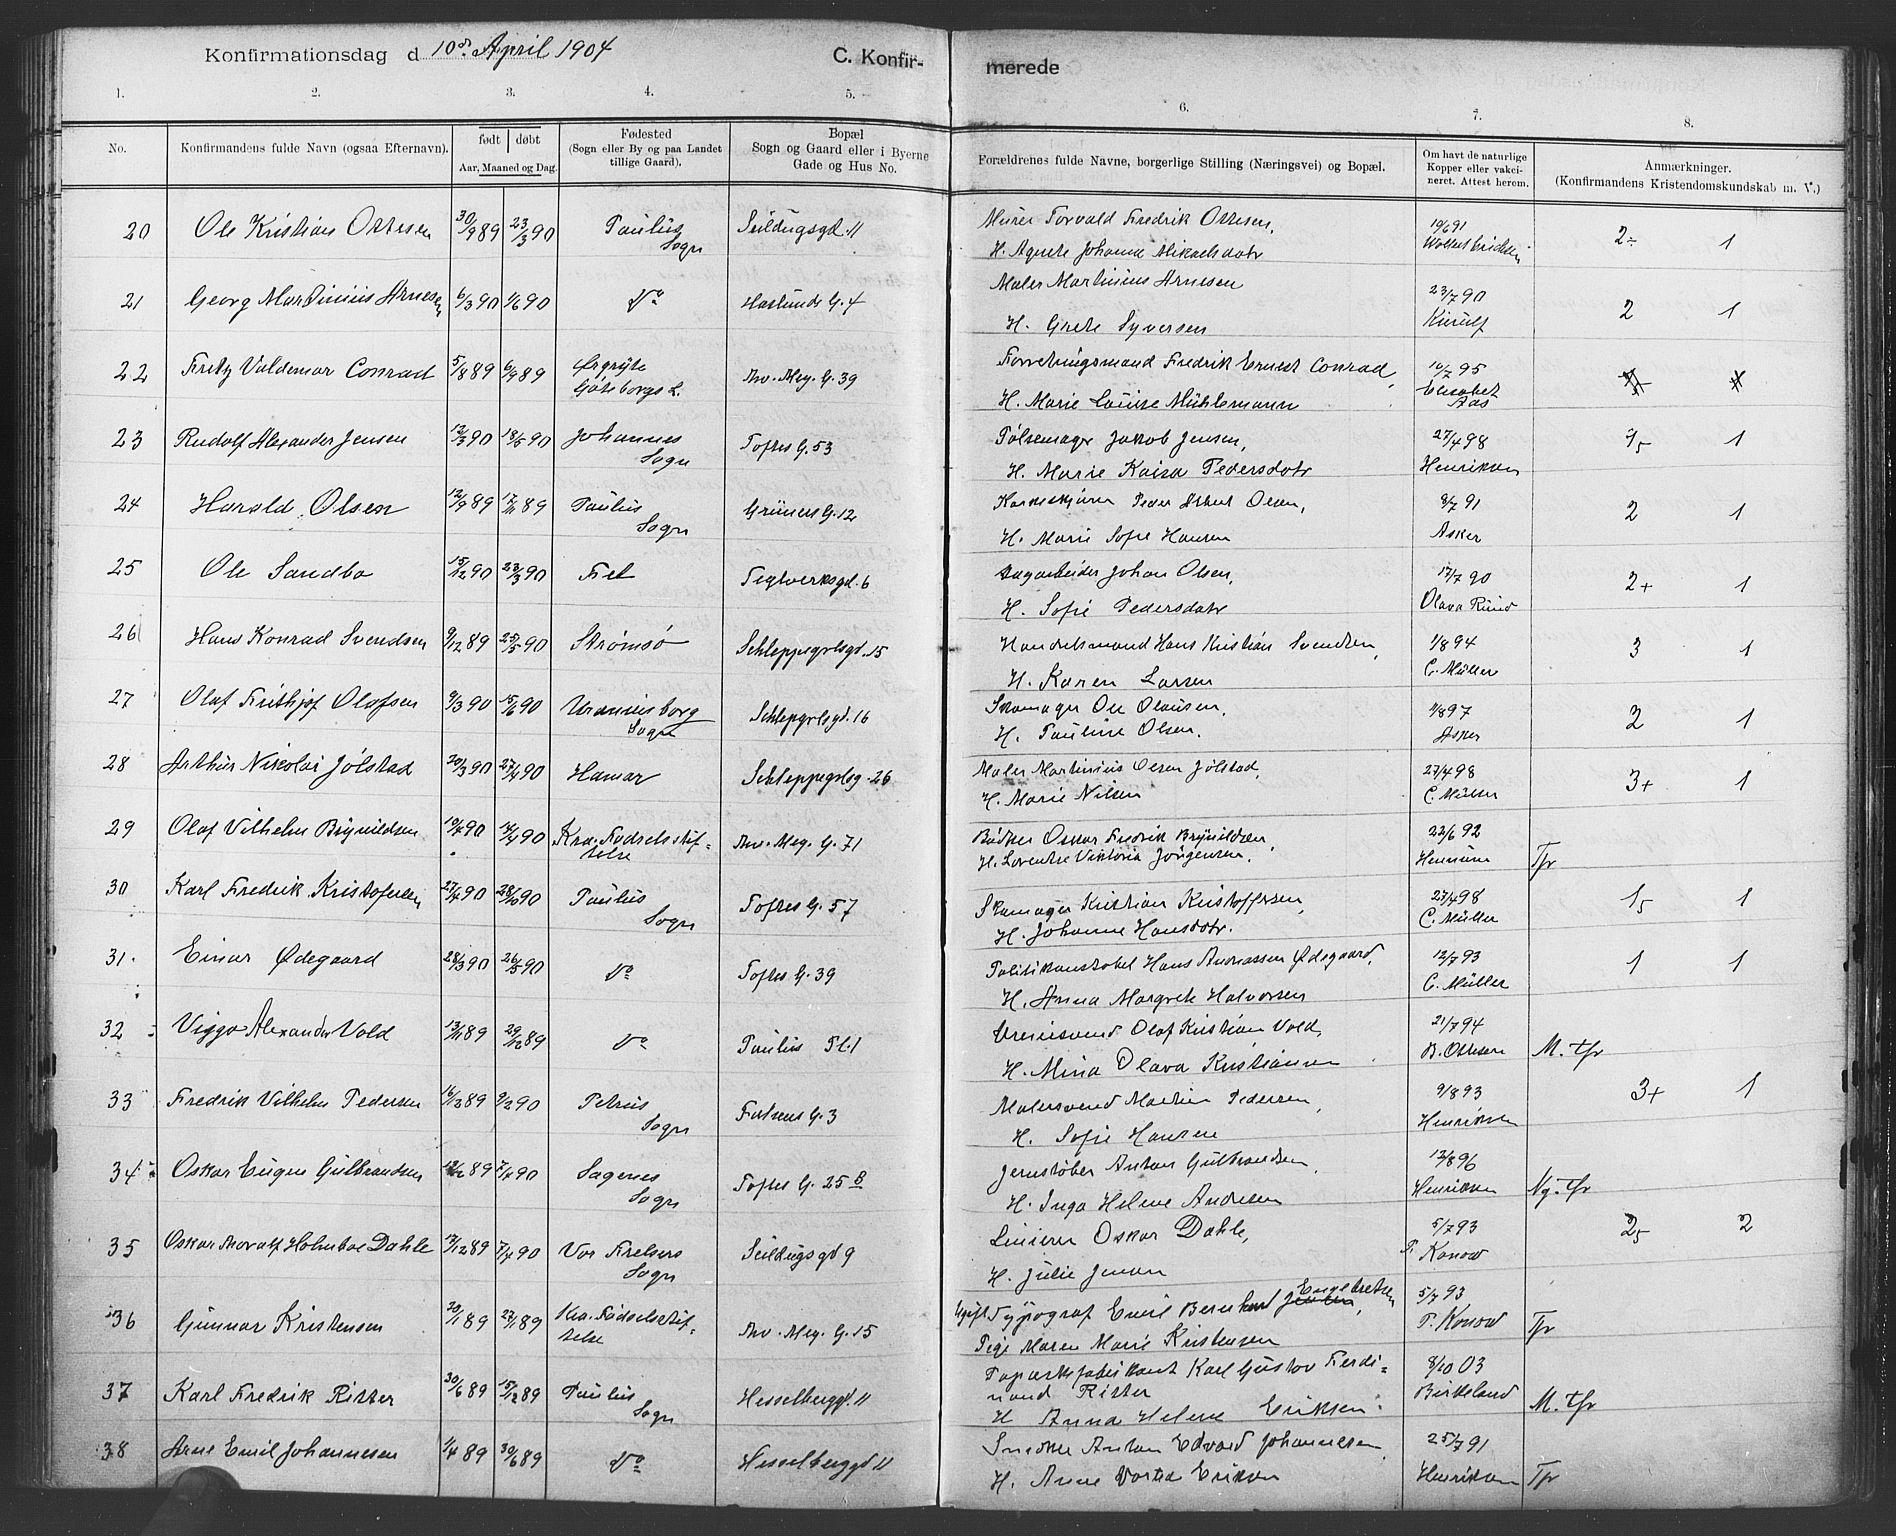 Konfirmationsdag d 10de April 1904
C. Konfirmerede
1. 2. 3. 4. 5. 6. 7. 8.
No. | Konfirmandens fulde Navn (ogsaa Efternavn). | født | døbt Aar, Maaned og Dag. | Fødested (Sogn eller By og paa Landet tillige Gaard). | Bopæl Sogn og Gaard eller i Byerne Gade og Hus No. | Forældrenes fulde Navne, borgerlige Stilling (Næringsvei) og Bopæl. | Om havt de naturlige Kopper eller vakcineret. Attest herom. | Anmærkninger. (Konfirmandens Kristendomskundskab m. V.)
20 Ole Kristian Ottesen 30/9 89 23/3 90 Paulus Sogn Seildugsgd. 11 Murer Torvald Fredrik Ottesen, 19/6 91 2÷ 1
H. Agnete Johanna Mikaelsdatr
21 Georg Martinius Arnesen 6/3 90 1/6 90 Do Haslunds G. 4 Maler Martinius Arnesen 23/7 90 2 1
H. Grete Syversen Kierulf
22 Fritz Valdemar Conrad 5/8 89 6/9 89 Ørgryte Göteborgs L. Thv. Mey. G. 39 Forretningsmand Fredrik Ernest Conrad, 10/7 95
H. Marie Louise Mühlemann Elisabet Aas
23 Rudolf Alexander Jensen 12/3 90 18/5 90 Johannes Sogn Toftes G. 53 Pølsemager Jakob Jensen, 27/4 98 1
H. Marie Kaisa Pedersdatr Henriksen
24 Harald Olsen 12/9 89 17/11 89 Paulus Sogn Grüners G. 12 Peder Olsen, 8/7 91 2 1
H. Marie Sofie Hansen Asker
25 Ole Sandbo 15/12 90 23/3 90 Fet Teglverksgd. 6 Dagarbeider Johan Olsen, 17/7 90 2+ 1
H. Sofie Pedersdatr Olava Rund
26 Hans Konrad Svendsen 9/12 89 25/5 90 Strømsø Schleppegrelsgd. 15 Handelsmand Hans Kristian Svendsen, 1/8 94 3 1
H. Karen Larsen C. Müller
27 Olaf Frithjof Olafsen 9/3 90 15/6 90 Uranienborg Sogn Schlepgrlsgd. 16 Skomager Ole Olausen, 1/8 97 2 1
H. Pauline Olsen. Asker
28 Arthur Nikolai Jølstad 20/3 90 27/4 90 Hamar Schleppegrlsg. 26 Maler Martinius Olsen Jølstad, 27/4 98 3+ 1
H. Marie Nilsen C. Müller
29 Olaf Vilhelm Brynildsen 90 14/4 90 Kra. Fødselsstiftelse Thv. Mey. G. 71 Bødker Oskar Fredrik Brynildsen, 22/6 92
H. Lorentse Viktoria Jørgensen, Tfr
30 Karl Fredrik Kristofersen 27/4 90 28/10 90 Paulus Sogn Toftes G. 57 Skomager Kristian Kristoffersen, 27/4 98 15 1
H. Johanne Hansdatr. C. Müller
31. Einar Ødegaard 28/3 90 26/5 90 Do Toftes G. 39 Politikonstabel Hans Andreassen Ødegaard, 12/7 93 1 1
H. Anna Margrete Halvorsen C. Müller
32 Viggo Alexander Vold 13/11 89 29/12 89 Do Paulus Pl. 1 Olaf Kristian Vold, 21/7 94
H. Mina Olava Kristiansen B. Ottesen M. tfr
33 Fredrik Vilhelm Pedersen 16/12 89 9/2 90 Petrus Sogn G. 3 Malersvend Martin Pedersen, 9/8 93 3+ 1
H. Sofie Hansen Henriksen
34 Oskar Eugen Gulbrandsen 89 7/4 90 Sagenes Sogn Toftes G. 25 B Jernstøber Anton Gulbrandsen, 12/8 96
H. Inga Helene Andresen Henriksen Ny. tfr
35 Oskar Thoralf Holmboe Dahle 12/12 89 7/4 90 Vor Frelsers Sogn Seildugsgd 9 Linierer Oskar Dahle, 5/7 93 25 2
H. Julie Jensen P. Konow
36 Gunnar Kristensen 20/1 89 27/1 89 Kra. Fødselsstiftelse Thv. Mey. G. 15 Ugift Typograf Emil Bernhard Jensen Engebretsen, 5/7 93
Pige Maren Marie Kristensen P. Konow Tfr
37 Karl Fredrik Ritter 30/6 89 15/12 89 Paulus Sogn Hesselberggd. 11 Papæskefabrikant Karl Gustav Ferdi= 8/10 03
nand Ritter Birkeland
H Anna Helene Eriksen. M. tfr
38 Arne Emil Johannesen 1/4 89 30/6 89 Do Hesselberggd 11 Snedker Anton Edvard Johannesen 25/7 91
H. Anne Dortea Eriksen Henriksen Tfr